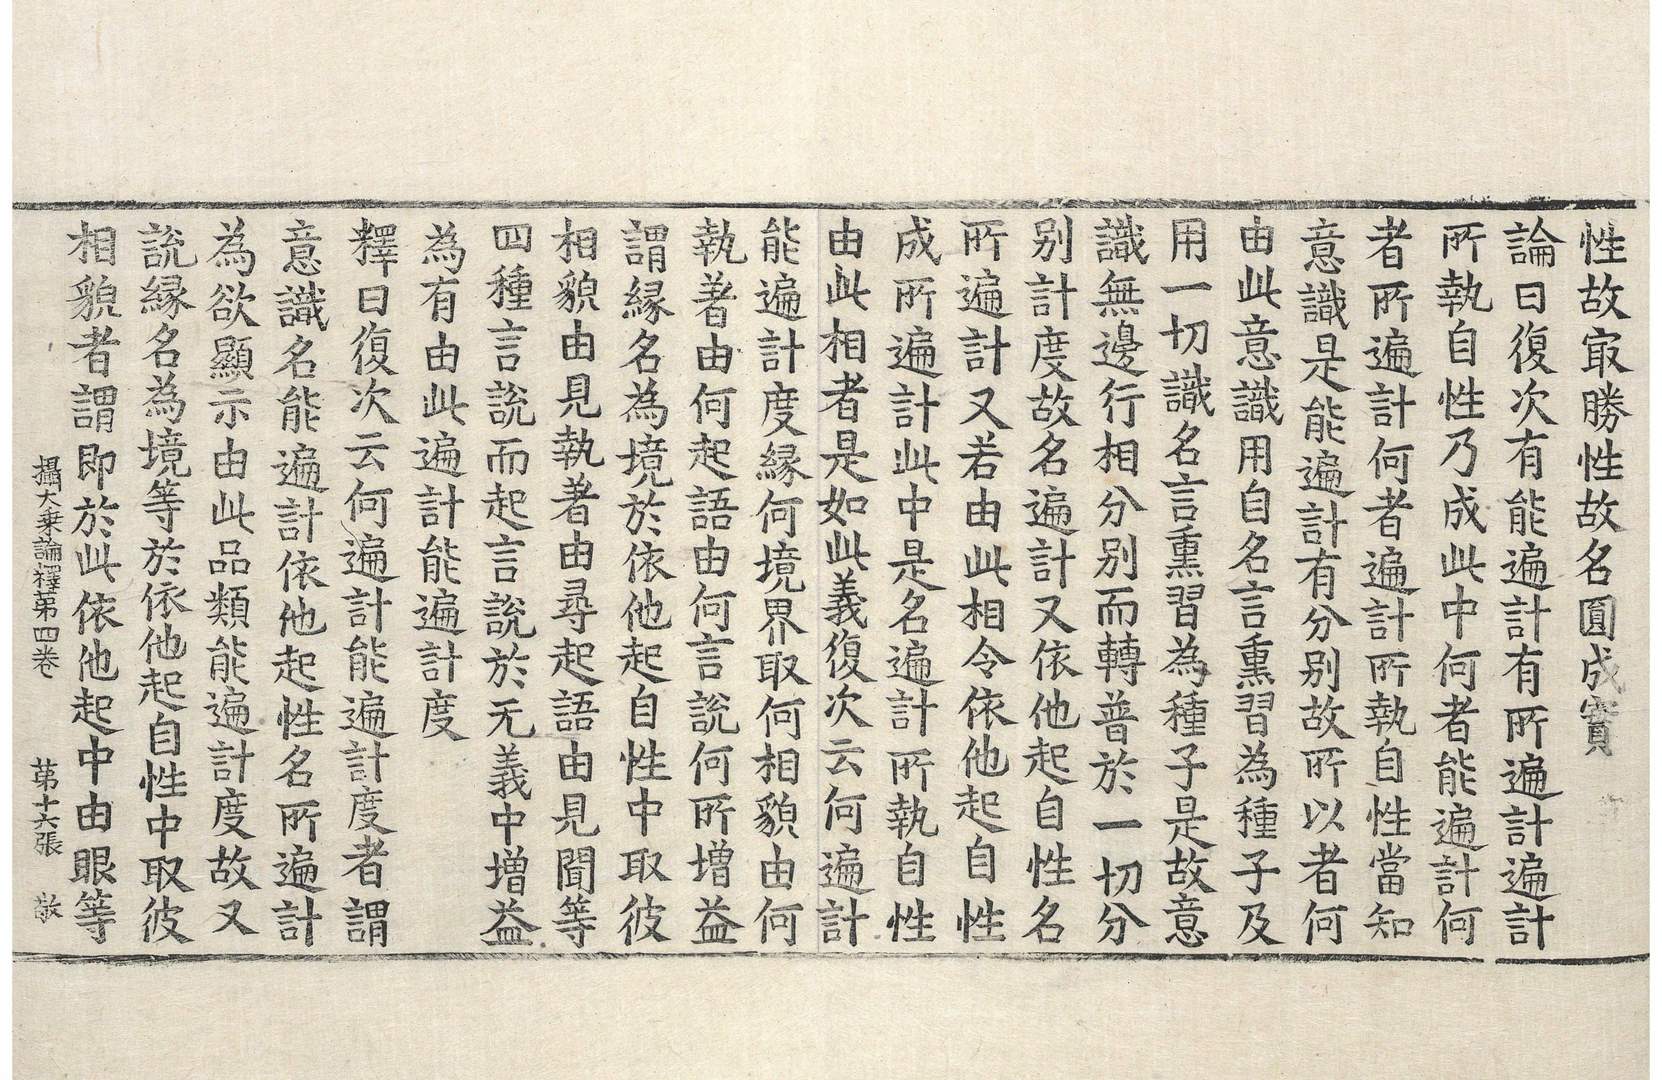 性故㝡勝性故名圓成實
論曰復次有能遍計有所遍計遍計
所執自性乃成此中何者能遍計何
者所遍計何者遍計所執自性當知
意識是能遍計有分别故所以者何
由此意識用自名言熏習為種子及
用一切識名言熏習為種子是故意
識無邊行相分别而轉普於一切分
别計度故名遍計又依他起自性名
所遍計又若由此相令依他起自性
成所遍計此中是名遍計所執自性
由此相者是如此義復次云何遍計
能遍計度縁何境界取何相貌由何
執著由何起語由何言說何所增益
謂縁名為境於依他起自性中取彼
相貌由見執著由尋起語由見聞等
四種言說而起言說於无義中增益
為有由此遍計能遍計度
釋曰復次云何遍計能遍計度者謂
意識名能遍計依他起性名所遍計
為欲顯示由此品類能遍計度故又
說縁名為境等於依他起自性中取彼
相貌者謂即於此依他起中由眼等
攝大乗論釋第四卷 第十六張 敬